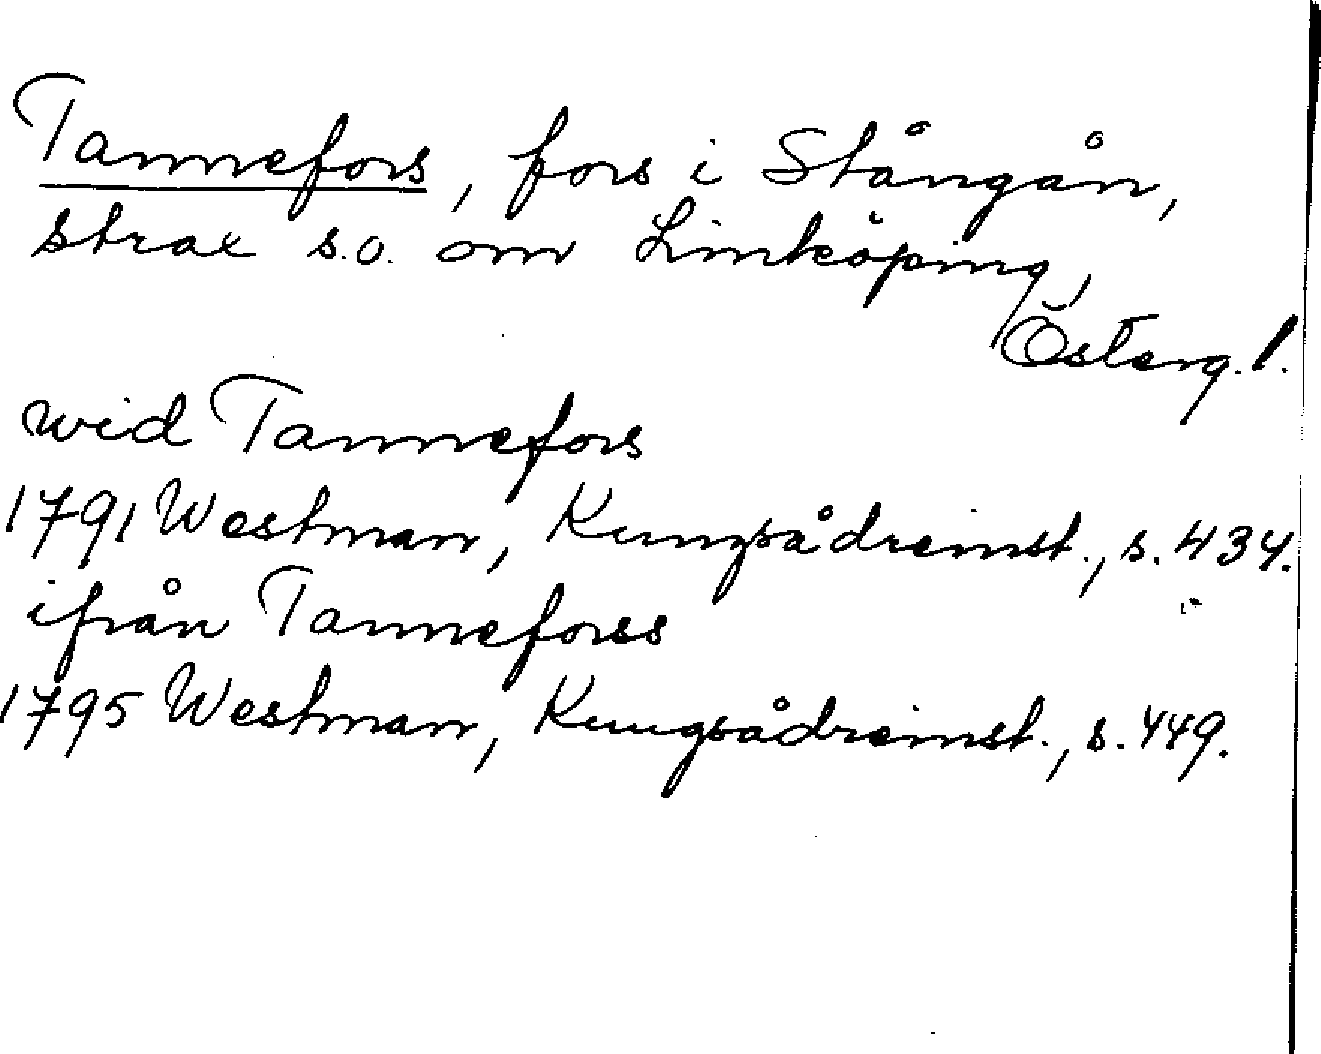 Tannefors, fors i Stångån,
strax s.o. om Linköping,
Österg.l.
wid Tannefors
1791 Westman, Kungsådreinst., s. 434.
ifrån Tanneforss
1795 Westman, Kungsådreinst., s. 449.